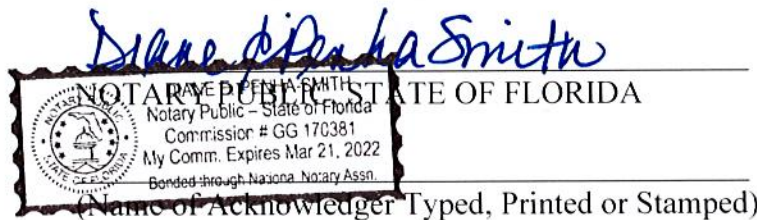 Smith
PENHA-SMITH
NOTARY PUBLIC, STATE OF FLORIDA
Notary Public – State of Florida
Commission # GG 170381
My Comm. Expires Mar 21, 2022
Bonded through National Notary Assn.
NOTARY PUBLIC
STATE OF FLORIDA
(Name of Acknowledger Typed, Printed or Stamped)